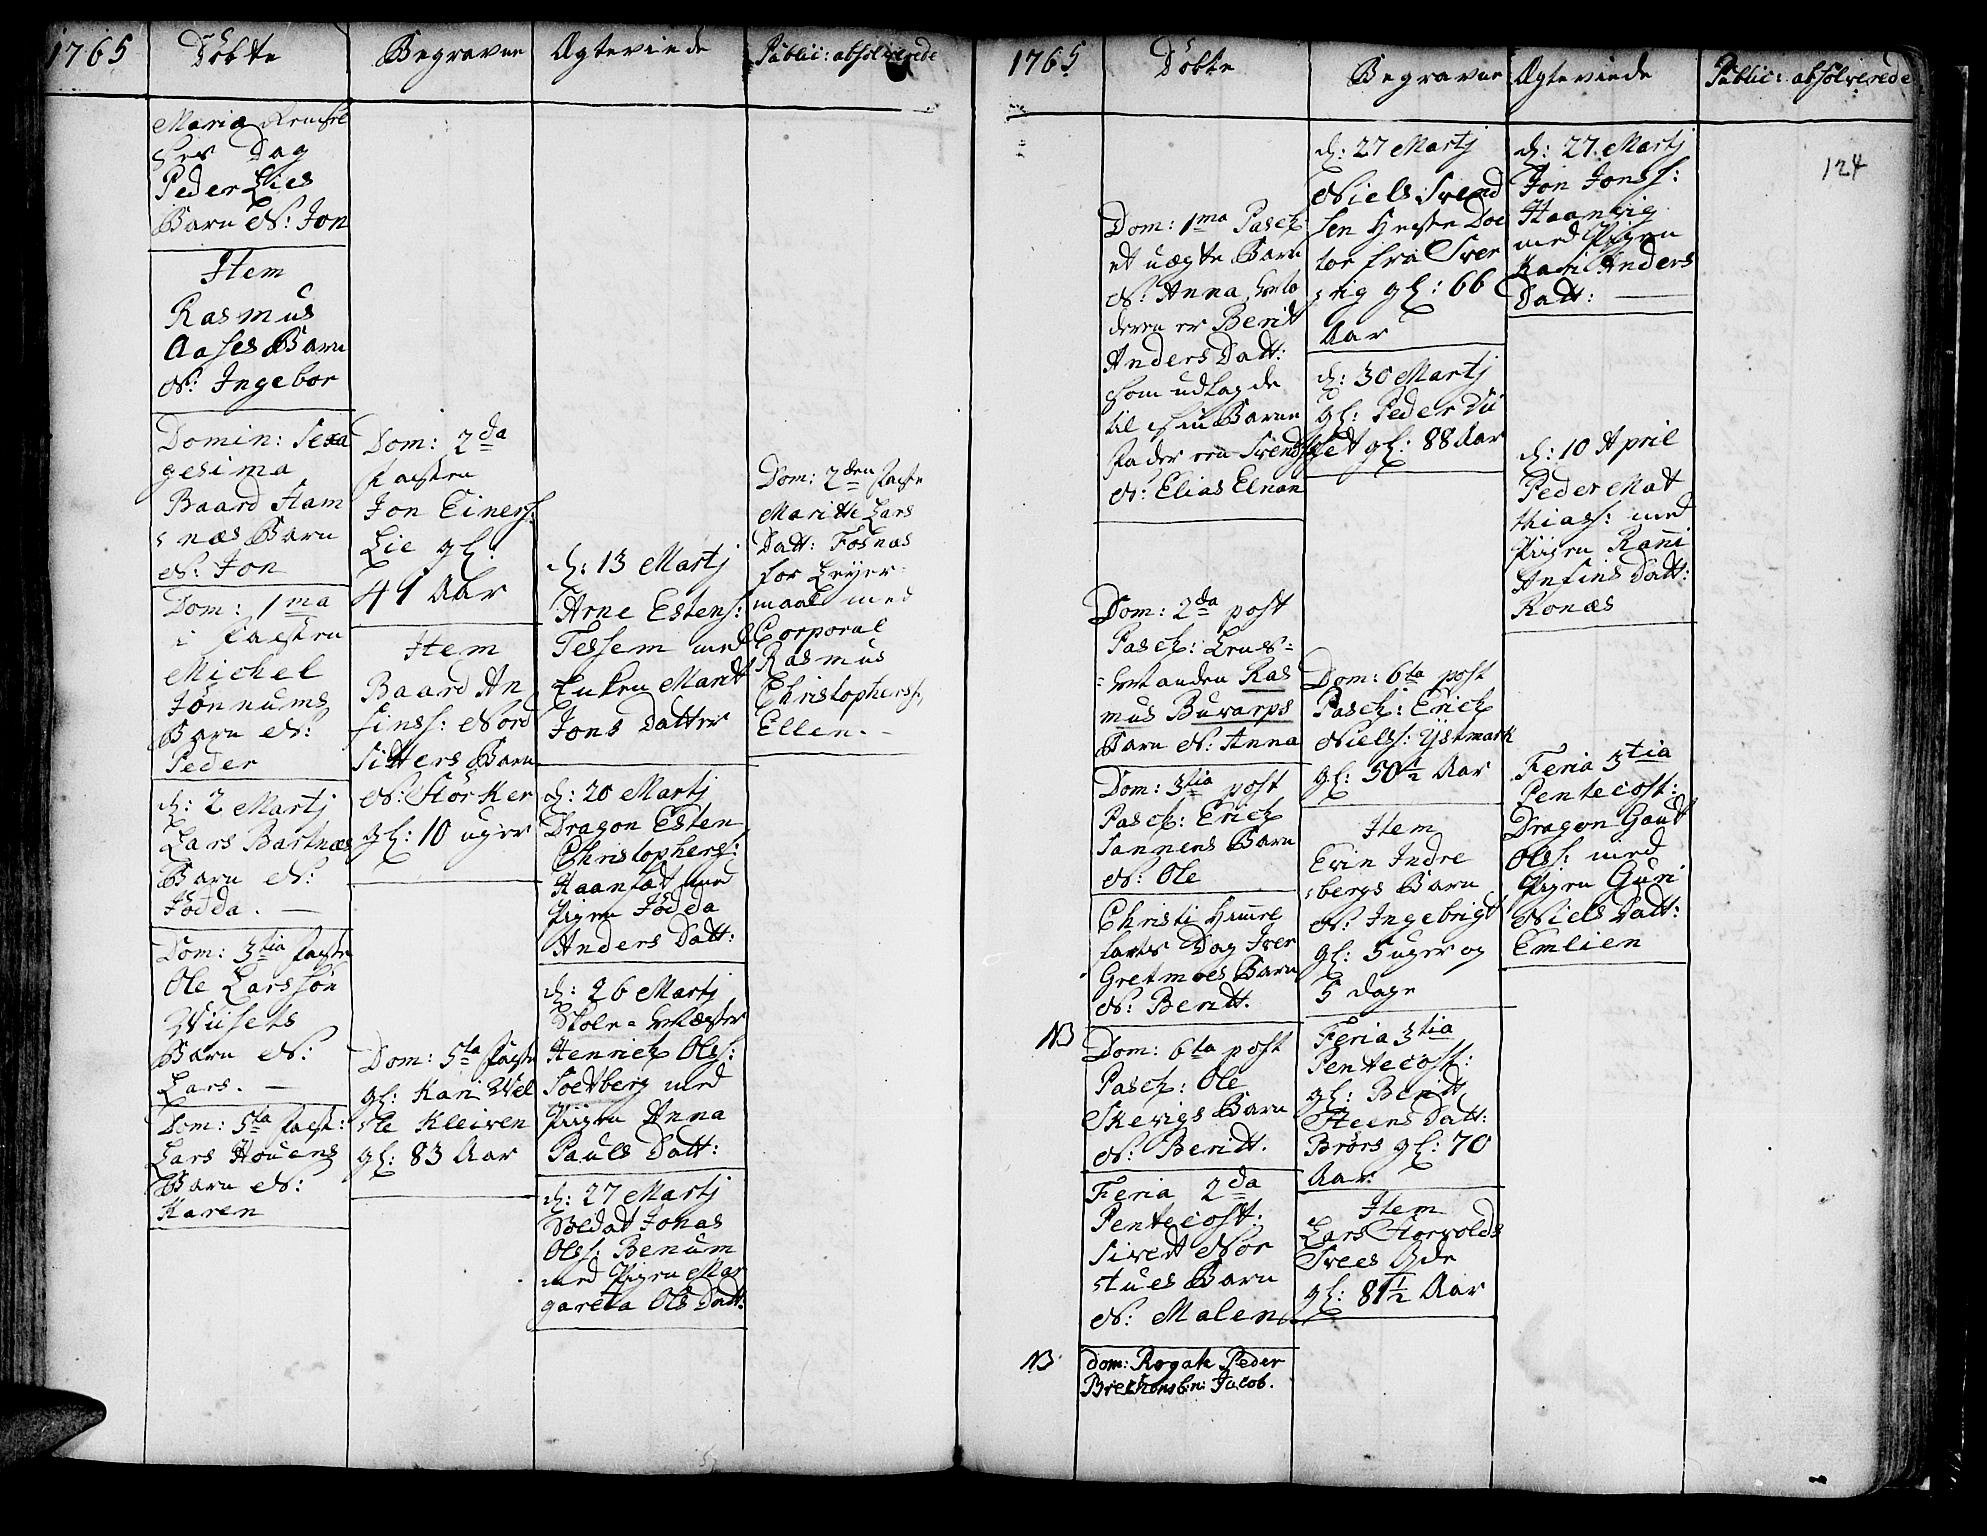 1765
Döbte
Begravne
Ægteviede
Public: absolverede
Mariæ Renssel
ses Dag
Peder Lies
Barn N: Jon
Item
Rasmus
Aases Barn
N: Ingebor
Domin: Sexa
gesima
Baard Ham
snæs Barn
N: Jon
Dom: 1ma
i fasten
Michel
Jönnums
Barn N:
Peder
d: 2 Martj
Lars Bartnæs
Barn N:
Jödda. —
Dom: 3tia faste
Ole Larssön
Wiisets
Barn N:
Lars. —
Dom: 5ta fast:
Lars Houens
Barn N:
Karen
Dom: 2da
fasten
Jon Einers:
Lie gl:
41 Aar
Item
Baard An
finss: Nord
Sitters Barn
N: Störker
gl: 10 uger
Dom: 5ta faste
gl: Kari Wel
ste Kleiven
gl: 83 Aar
d: 13 Martj
Arne Estens:
Tessem med
Enken Marit
Jons Datter
d: 20 Martj
Dragon Esten
Christophers:
Haanfæt med
Pigen Jödda
Anders Datt:
d: 26 Martj
Skole-Mæster
Henrich Olss:
Soetberg med
Piigen Anna
Pauls Datt:
d: 27 Martj
Soldat Jonas
Olss: Benum
med Pigen Mar
gareta Ols Datt:
Dom: 2den faste
Maritte Lars
Datt: Fosnas
for Leyer
maal med
Corporal
Rasmus
Christopherss:
Ellen. —
1765
Döbte
Begravne
Ægteviede
Public: absolverede
124
Dom: 1ma Pasch
et uægte Barn
N: Anna, Mo
deren er Berit
Anders Datt:
som udlagde
til sin Barne
fader en Svensk
N: Elias Elnan
Dom: 2da post
Pasch: Lens-
-Manden Ras
mus Buvarps
Barn N: Anna
Dom: 3tia post
Pasch: Erich
Sannens Barn
N: Ole
Christi Himel
farts Dag Iver
Gretmoes Barn
N: Beridt.
NB
Dom: 6ta post
Pasch: Ole
Skevigs Barn
N: Beridt.
Feria 2da
Pentecost:
Sivert Nor
stues Barn
N: Malen
NB
Dom: Rogate Peder
Brechons b: n: Jacob.
d: 27 Martj
Niels Svend
sen Heste Doc
tor fra Sver
rig gl: 66
Aar
d: 30 Martj
gl: Peder Du
fedt gl: 88 Aar
Dom: 6ta post
Pasch: Erich
Niels: Ystmark
gl: 50½ Aar
Item
Evin Indre
bergs Barn
N: Ingebrigt
gl: 5 uger og
5 dage
Feria 3tia
Pentecost:
gl: Beridt
Steens Datt:
Brörs gl: 70
Aar
Item
Lars Horvolds
Trees Öde
gl: 81½ Aar
d: 27 Martj
Jon Jonss:
Haanvig
med Pigen
Kari Anders
Datt: —
d: 10 April
Peder Mat
thiass: med
Piigen Rani
Anfins Datt:
Ronæs
Feria 3tia
Pentecost:
Dragon Gaut
Olss: med
Pigen Guri
Niels Datt:
Emlien